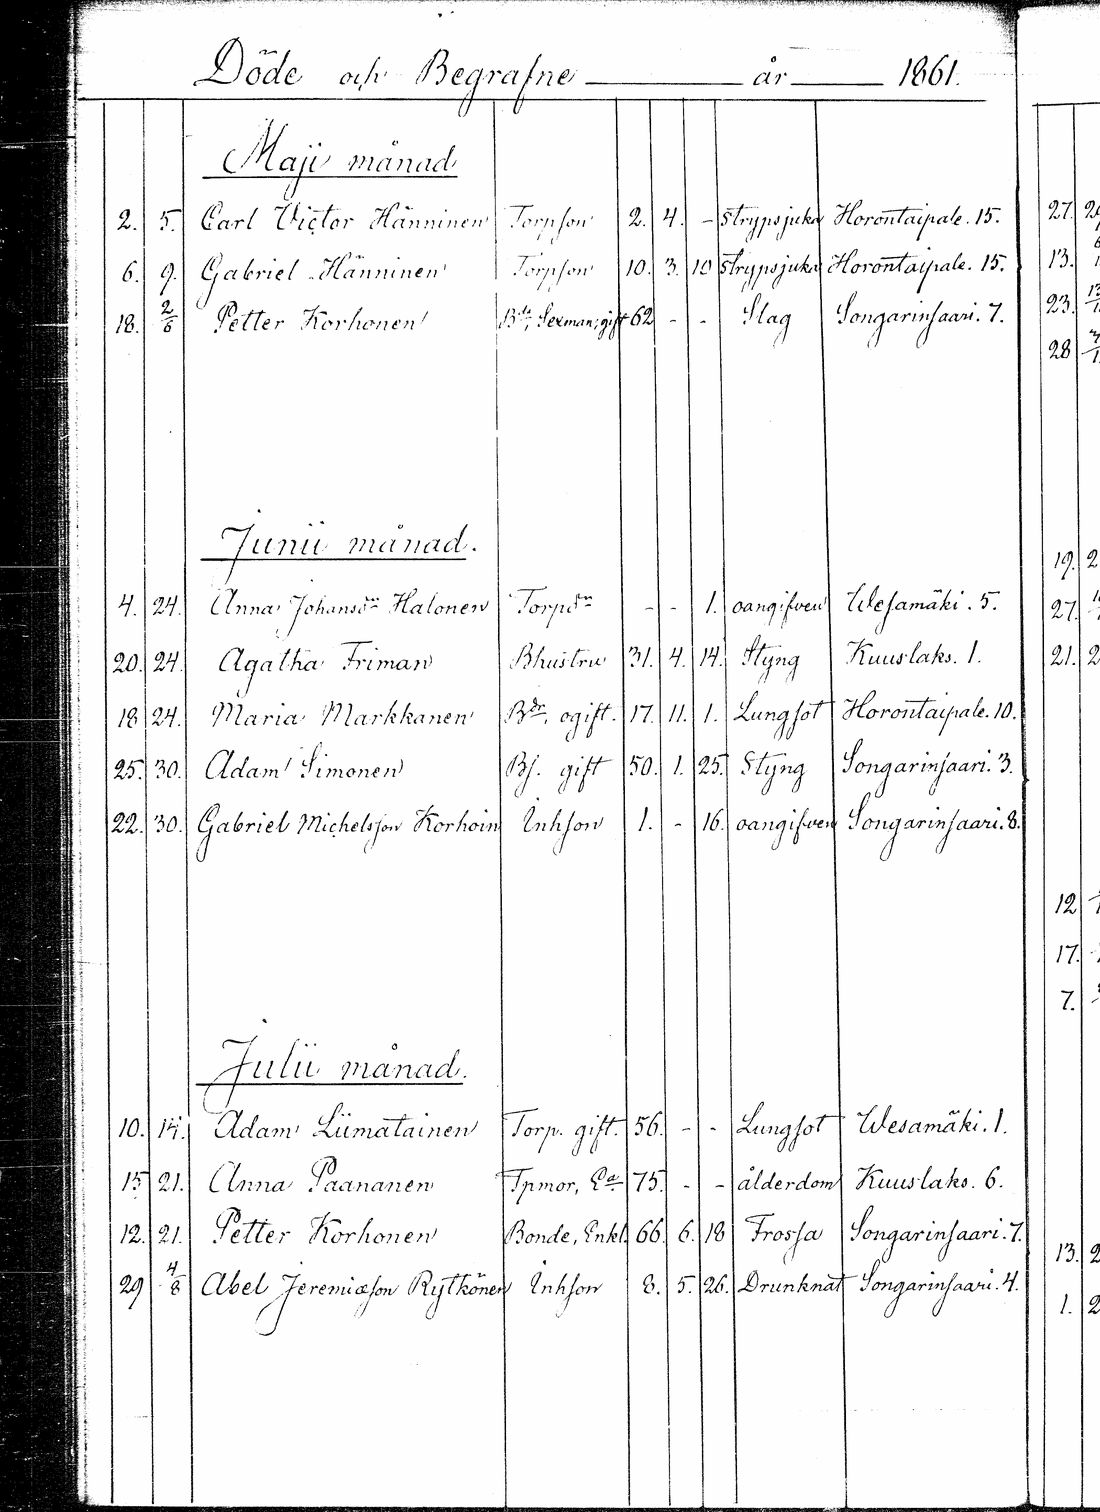 Döde och Begrafne år 1861.
Maji månad
2. 5. Carl Victor Hänninen Torpson 2. 4. - Strypsjuka Horontaipale. 15.
6. 9. Gabriel Hänninen Torpson 10. 3. 10 Strypsjuka Horontaipale. 15.
18. 2/6 Petter Korhonen Bde, Sexman, gift 62 - - Slag Songarinsaari. 7.
Junii månad.
4. 24. Anna Johansdr Halonen Torpdr - - 1. oangifven Wesamäki. 5.
20. 24. Agatha Friman Bhustru 31. 4. 14. Styng Kuuslaks. 1.
18 24. Maria Markkanen Bdr, ogift. 17. 11. 1. Lungsot Horontaipale. 10.
25. 30. Adam Simonen Bs. gift 50. 1. 25. Styng Songarinsaari. 3.
22. 30. Gabriel Michelsson Korhoin Inhson 1. - 16. oangifven Songarinsaari. 8.
Julii månad.
10. 14. Adam Liimatainen Torp. gift. 56. - - Lungsot Wesamäki. 1.
15 21. Anna Paananen Tpmor, Ea 75. - - ålderdom Kuuslaks. 6.
12. 21. Petter Korhonen Bonde, Enkl. 66. 6. 18 Frossa Songarinsaari. 7.
29 4/8 Abel Jeremiæson Rytkönen Inhson 8. 5. 26. Drunknat Songarinsaari. 4.
27.
13.
23.
28
19.
27.
21.
12
17.
7.
13.
1.